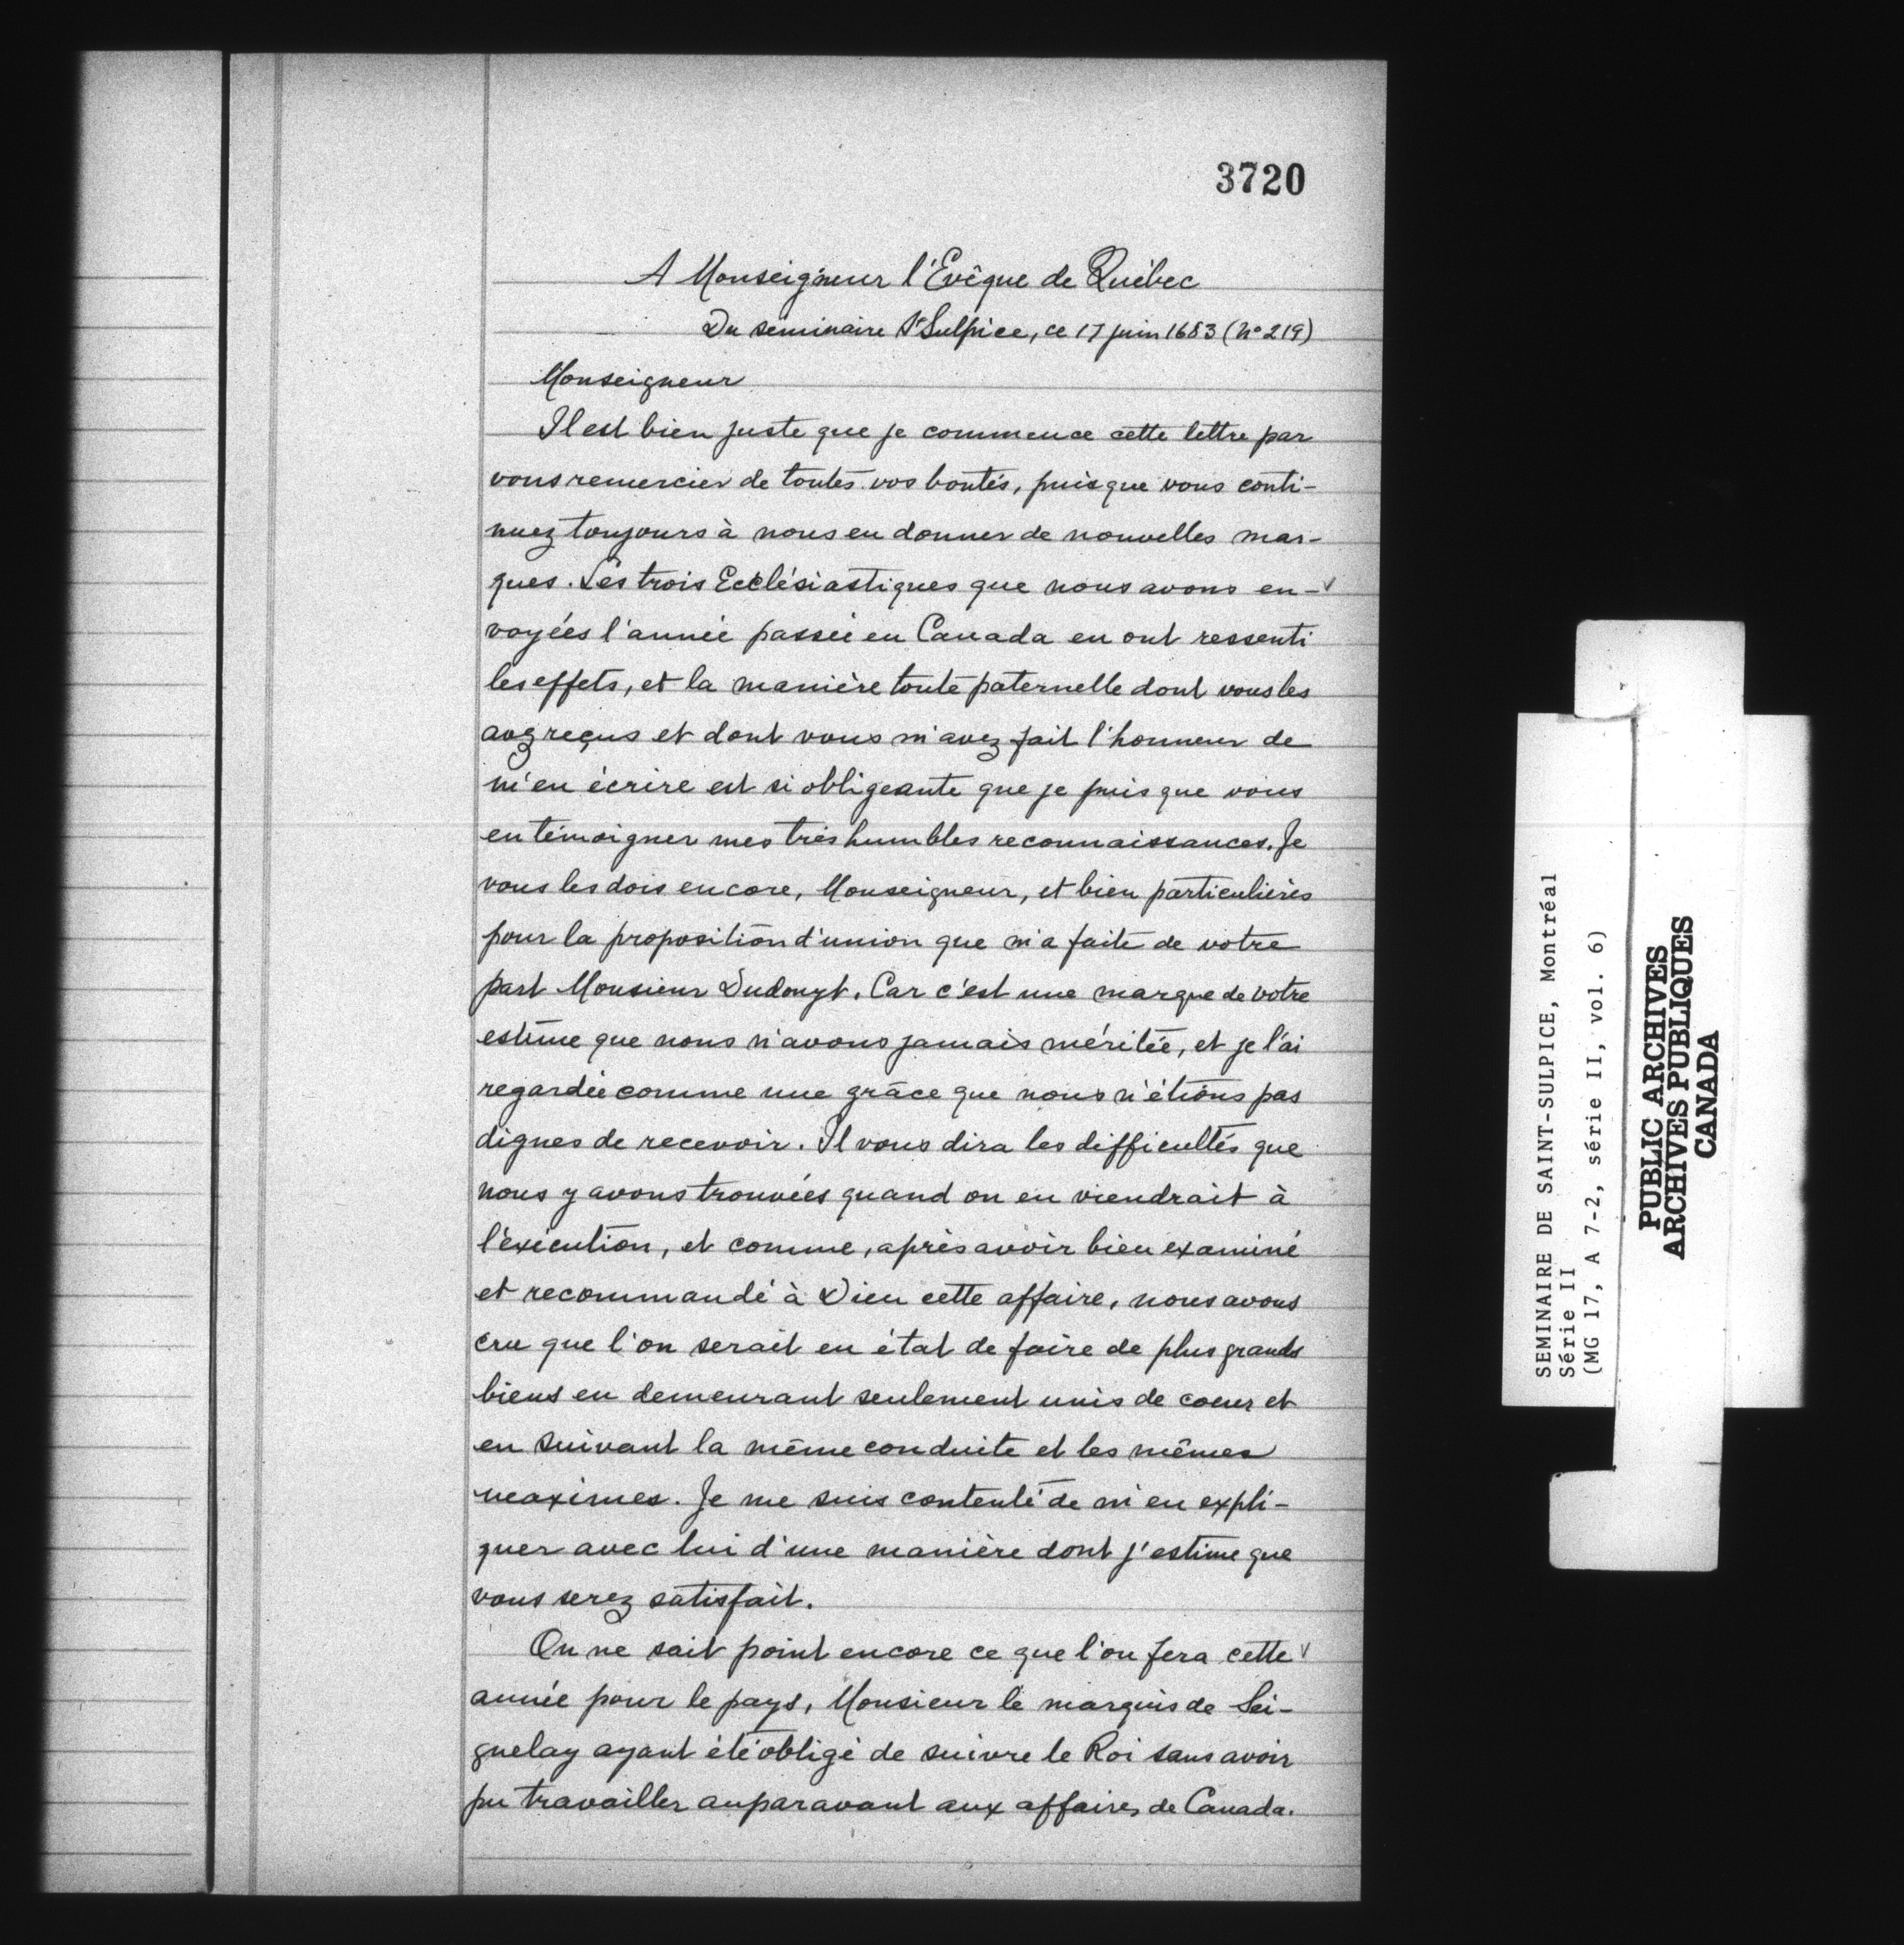 3720
A Monseigneur l'Evêque de Québec
Du séminaire St Sulpice, ce 17 juin 1683 (No 219)
Monseigneur
Il est bien juste que je commence cette lettre par
vous remercier de toutes vos bontés, puisque vous conti-
nuez toujours à nous en donner de nouvelles mar-
ques. Les trois Ecclésiastiques que nous avons en- v
voyées l'année passée en Canada en ont ressenti
les effets, et la manière toute paternelle dont vous les
avez reçus et dont vous m'avez fait l'honneur de
m'en écrire est si obligeante que je puis que vous
en témoigner mes très humbles reconnaissances. Je
vous les dois encore, Monseigneur, et bien particulières
pour la proposition d'union que m'a faite de votre
part Monsieur Dudouyt. Car c'est une marque de votre
estime que nous n'avons jamais méritée, et je l'ai
regardée comme une grâce que nous n'étions pas
dignes de recevoir. Il vous dira les difficultés que
nous y avons trouvées quand on en viendrait à
l'exécution, et comme, après avoir bien examiné
et recommandé à Dieu cette affaire, nous avons
cru que l'on serait en état de faire de plus grands
biens en demeurant seulement unis de coeur et
en suivant la même conduite et les mêmes
maximes. Je me suis contenté de m'en expli-
quer avec lui d'une manière dont j'estime que
vous serez satisfait.
On ne sait point encore ce que l'on fera cette v
année pour le pays, Monsieur le marquis de Sei-
gnelay ayant été obligé de suivre le Roi sans avoir
pu travailler auparavant aux affaires de Canada.
SEMINAIRE DE SAINT-SULPICE, Montréal
Série II
(MG 17, A 7-2, série II, vol. 6)
PUBLIC ARCHIVES
ARCHIVES PUBLIQUES
CANADA